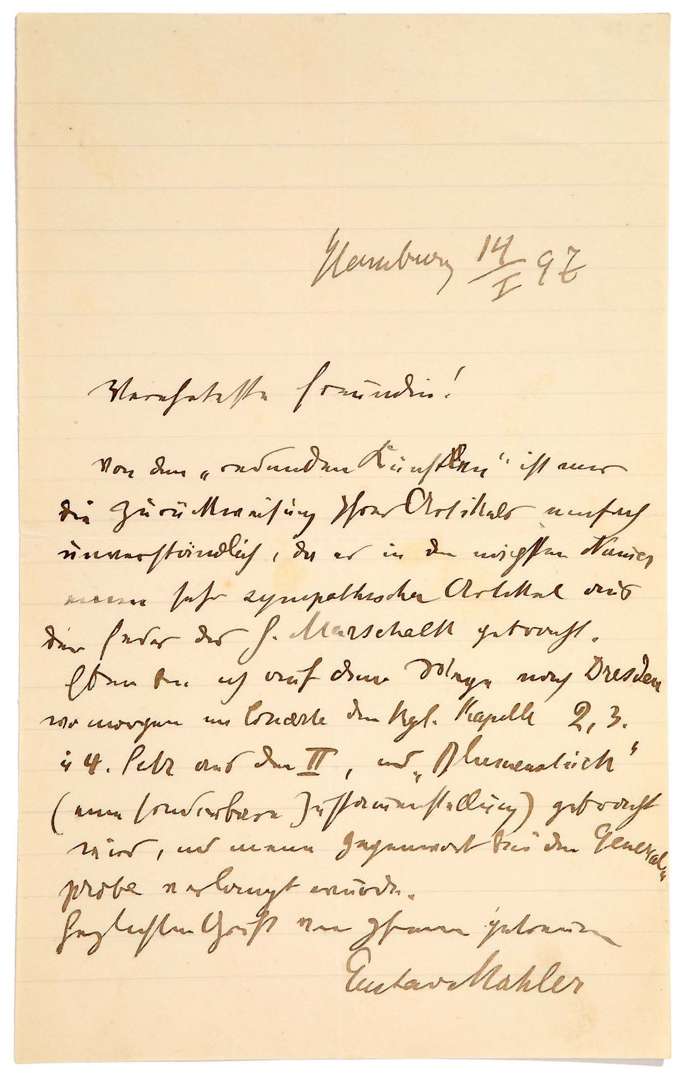 Hamburg 14/I 97
Verehrteste Freundin!
Von den „redenden Künsten" ist mir
die Zurückweisung Ihres Artikels einfach
unverständlich, da er in der
einen sehr sympathischen Artikel aus
der Feder des H. Marschalk gebracht.
Eben bin ich auf dem Wege nach Dresden
wo morgen im Concerte der Kgl. Kapelle 2, 3.
u 4. Satz aus der II, und „Blumenstück"
(eine sonderbare Zusammenstellung) gebracht
wird, und meine Gegenwart bei der General-
probe verlangt wurde.
Herzlichsten Gruß von Ihrem getreuen
Gustav Mahler